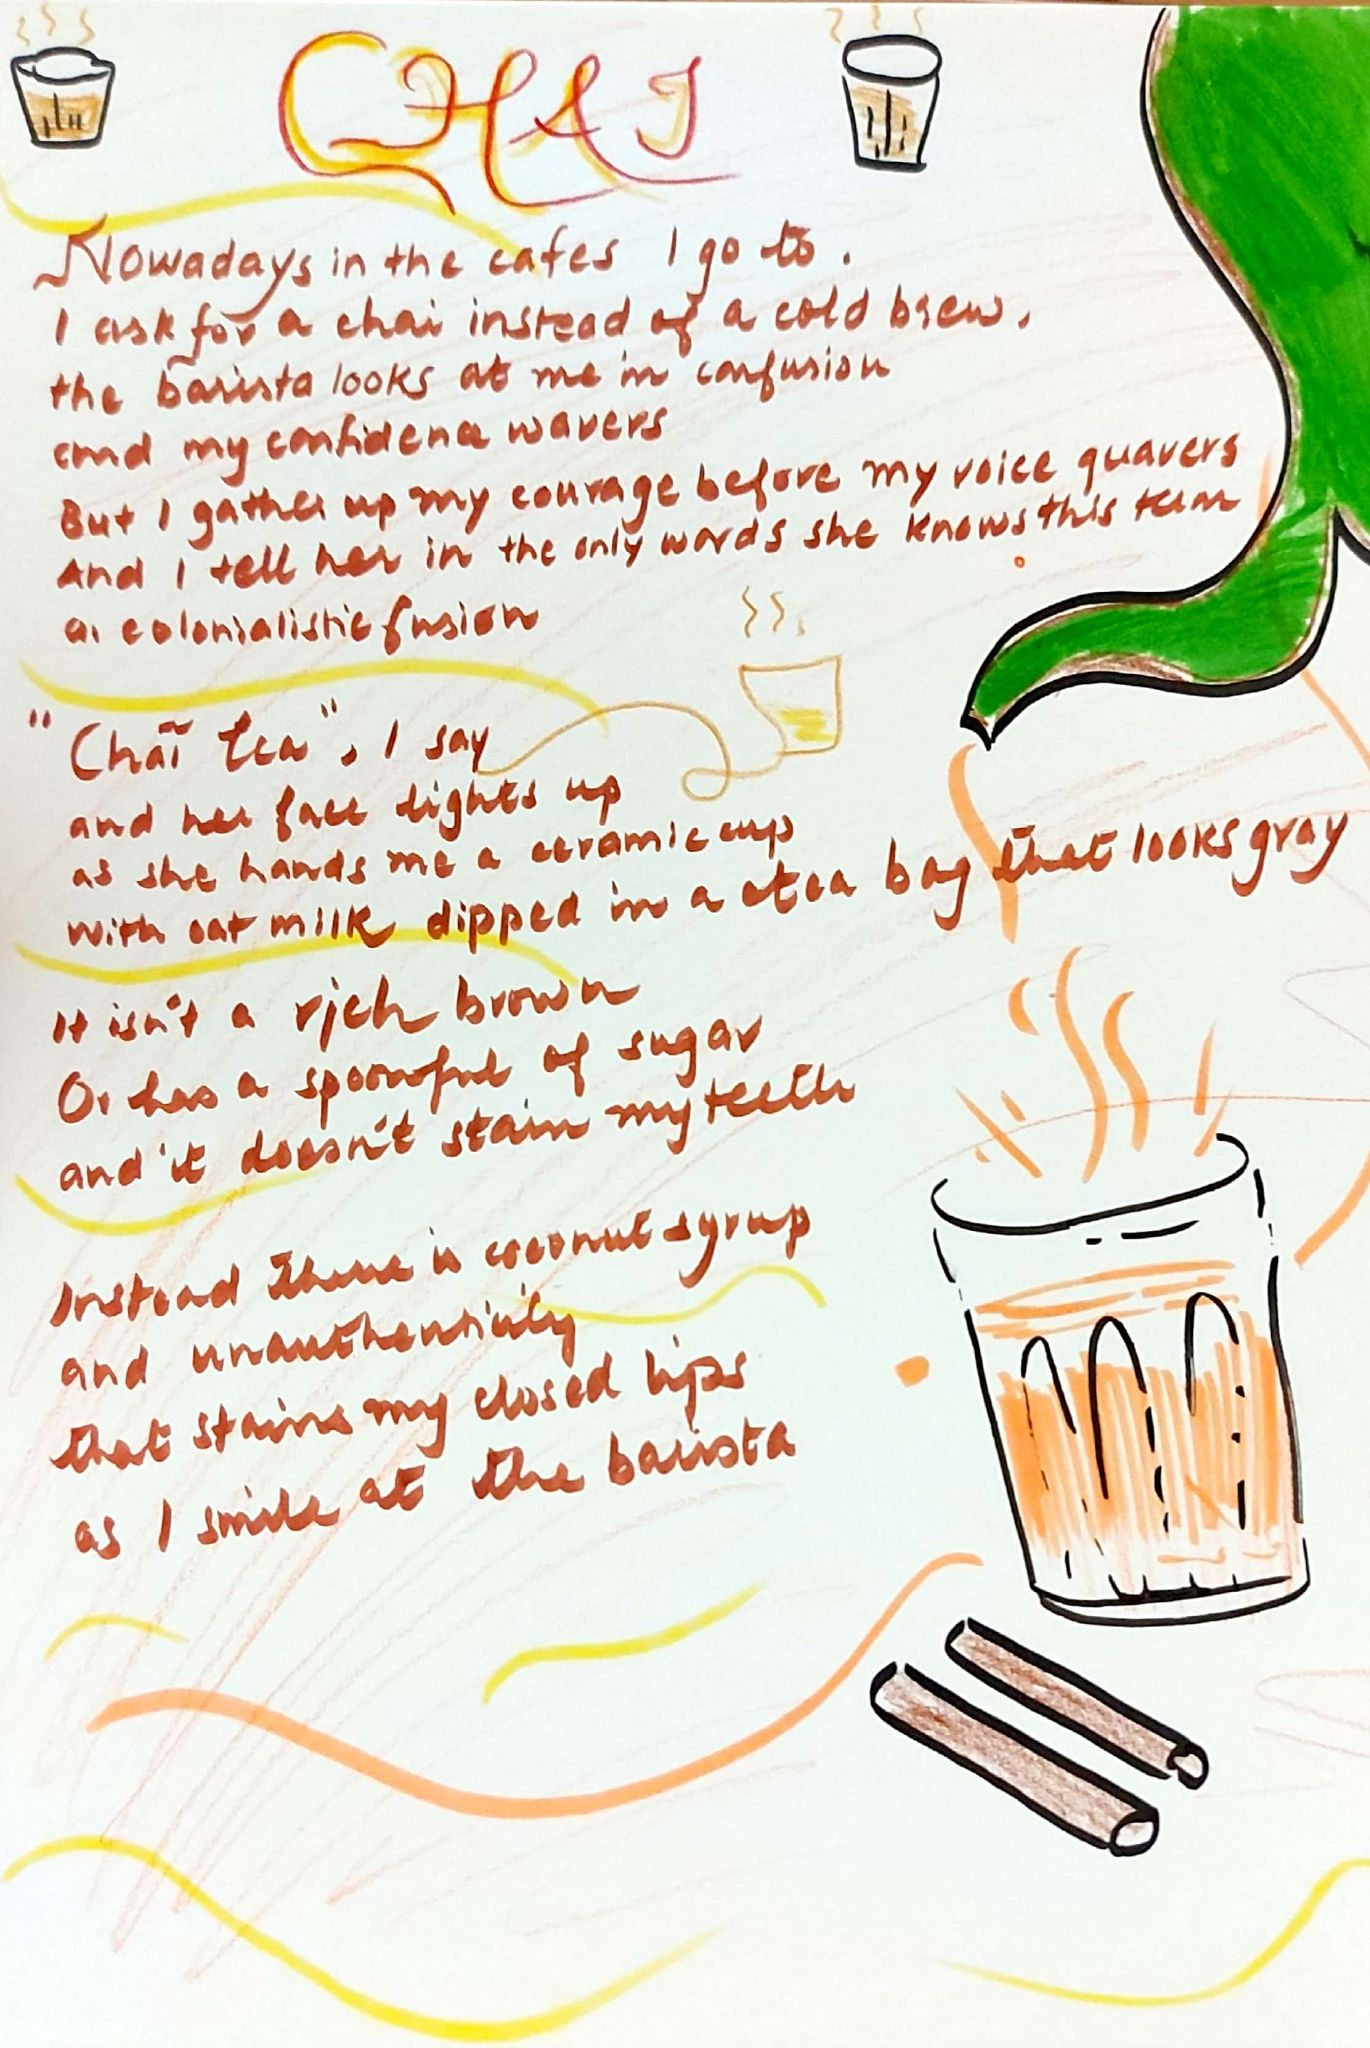 CHAI
Nowadays in the cafes I go to.
I ask for a chai instead of a cold brew.
the barista looks at me in confusion
and my confidence wavers
But I gather up my courage before my voice quavers
And I tell her in the only words she knows this term
a colonialistic fusion
"Chai tea", I say
and her face lights up
as she hands me a ceramic cup
with oat milk dipped in a tea bag that looks gray
It isn't a rich brown
Or has a spoonful of sugar
and it doesn't stain my teeth
Instead there is coconut syrup
and unauthenticity
that stains my closed lips
as I smile at the barista